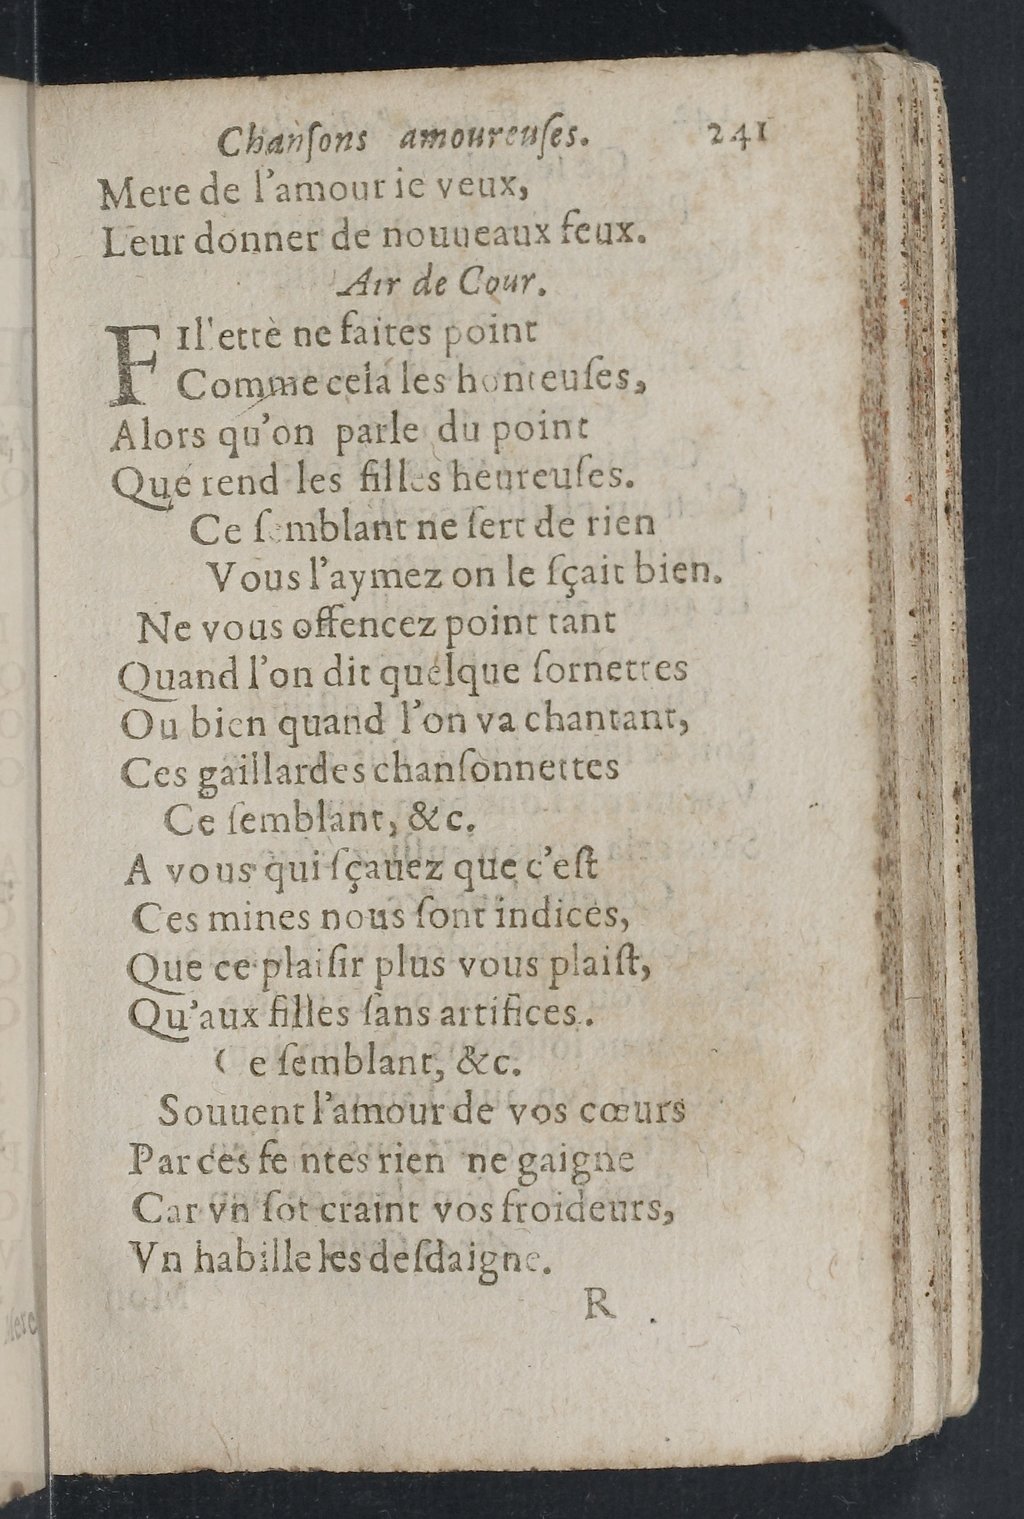 Chanſons amoureuſes. 241
Mere de l'amour ie veux,
Leur donner de nouueaux feux.
Air de Cour.
FIllette ne faites point
Comme cela les honteuſes,
Alors qu'on parle du point
Que rend les filles heureuſes.
Ce ſemblant ne ſert de rien
Vous l'aymez on le ſçait bien.
Ne vous offencez point tant
Quand l'on dit quelque ſornettes
Ou bien quand l'on va chantant,
Ces gaillardes chanſonnettes
Ce ſemblant, &c.
A vous qui ſçauez que c'eſt
Ces mines nous ſont indices,
Que ce plaiſir plus vous plaiſt,
Qu'aux filles ſans artifices.
Ce ſemblant, &c.
Souuent l'amour de vos cœurs
Par ces fentes rien ne gaigne
Car vn ſot craint vos froideurs,
Vn habille les deſdaigne.
R